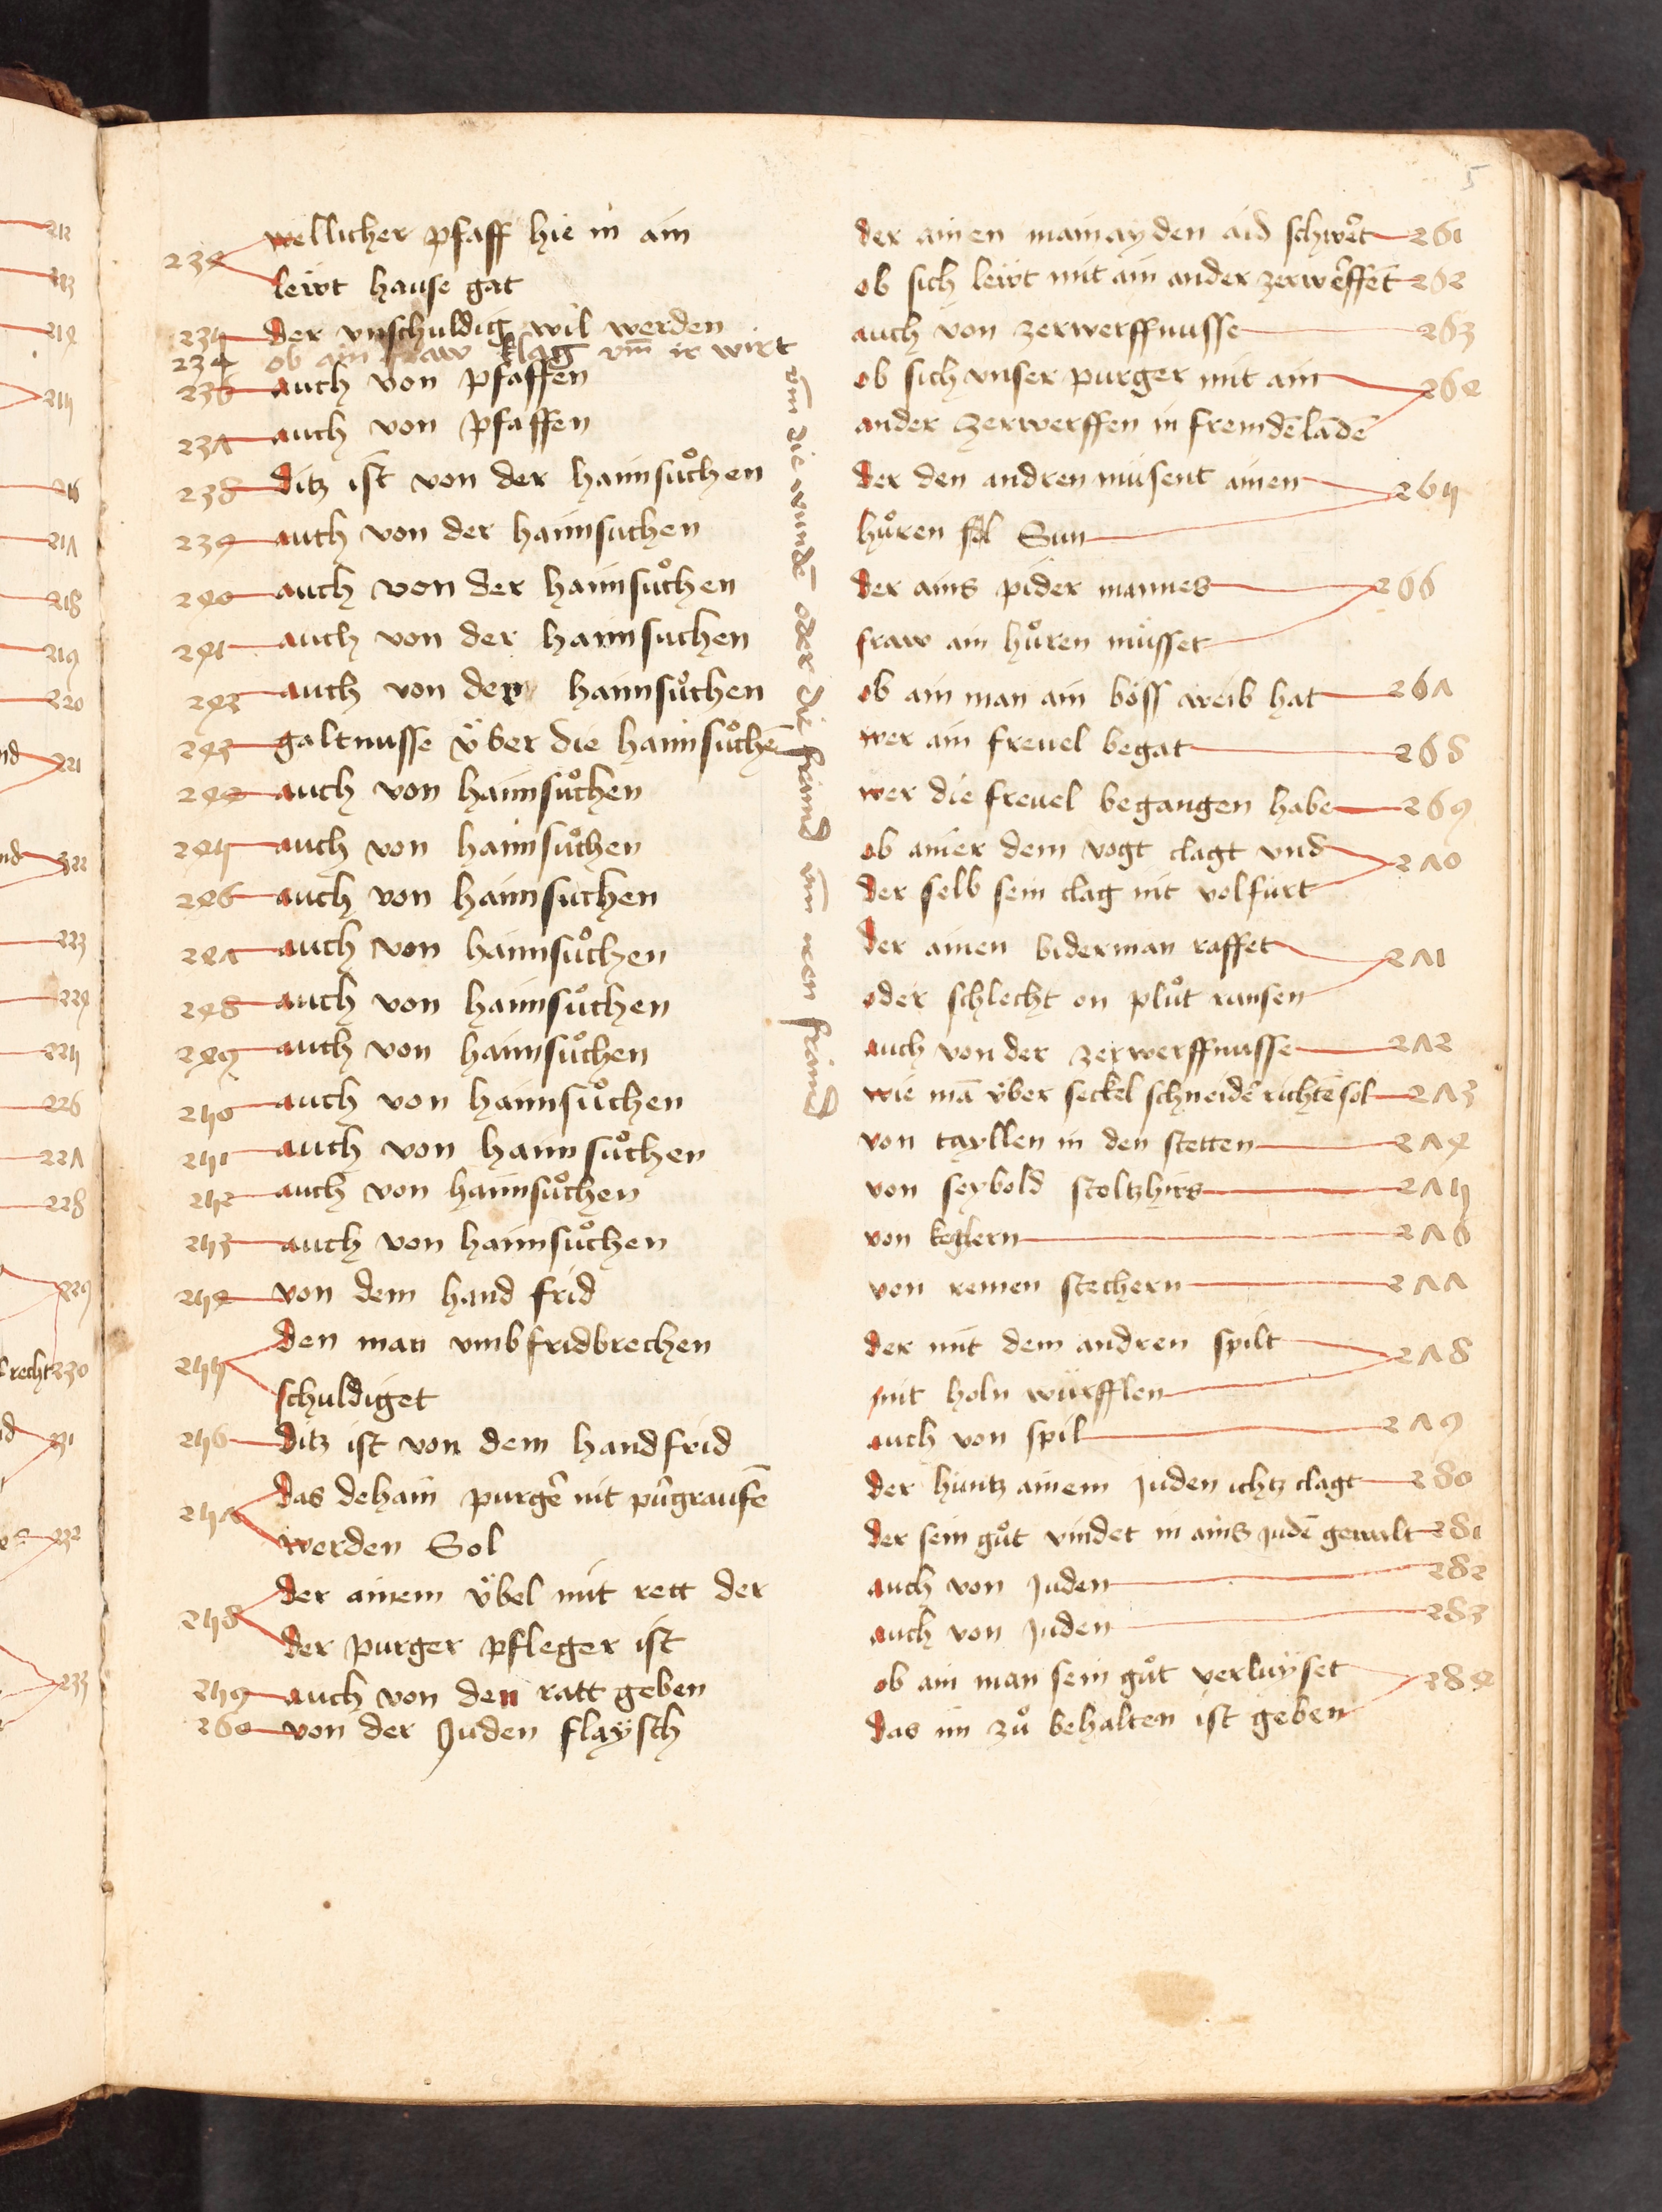 5
234 wellicher pfaff hie in ain
leẅt hause gat
235 der vnschuldig wil werden
234 ob ain fraw klag vm̄ ir wirt
vm̄ die wundē oder die fraind vm̄ iren fraind
236 auch von pfaffen
237 auch von pfaffen
238 ditz ist von der haimsůchen
239 auch von der haimsuchen
240 auch von der haimsůchen
241 auch von der haimsuchen
242 auch von der haimsůchen
243 galtnusse v̈ber die haimsůchē
244 auch von haimsůchen
245 auch von haimsůchen
246 auch von haimsuchen
247 auch von haimsůchen
248 auch von haimsůchen
249 auch von haimsůchen
250 auch von haimsůchen
251 auch von haimsůchen
252 auch von haimsůchen
253 auch von haimsůchen
254 von dem hand frid
255 den man vmb fridbrechen
schuldiget
256 ditz ist von dem handfrid
257 das dehain purgẽ nit pu̇rgraufē
werden Sol
258 der ainem v̈bel mit rett der
der purger pfleger ist
259 auch von den ratt geben
260 von der Juden flaysch
der ainen mainayden aid schwe͛t 261
ob sich leẅt mit ain ander zerwe͛ffent 262
auch von zerwerffnusse 263
ob sich vnser purger mit ain 264
ander zerwerffen in fremdē lādē
der den andren müsent ainen 265
hůren sol Sun
der ains pider mannes 266
fraw ain hůren müsset
ob ain man ain böss weib hat 267
wer ain freuel begat 268
wer die freuel begangen habe 269
ob ainer dem vogt clagt vnd 270
der selb sein clag nit volfürt
der ainen biderman raffet 271
oder schlecht on plůt runsen
auch von der zerwerffnusse 272
wie mā v̈ber seckel schneidē richtē sol 273
von tayllen in den stetten 274
von seybold stoltzhirs 275
von keglern 276
von remen stechern 277
der mit dem andren spilt 278
mit holn würfflen
auch von spil 279
der hintz ainem Juden ichtz clagt 280
der sein gůt vindet in ains Judē gewalt 281
auch von Juden 282
auch von Juden 283
ob ain man sein gůt verluẏset 284
das im zů behalten ist geben